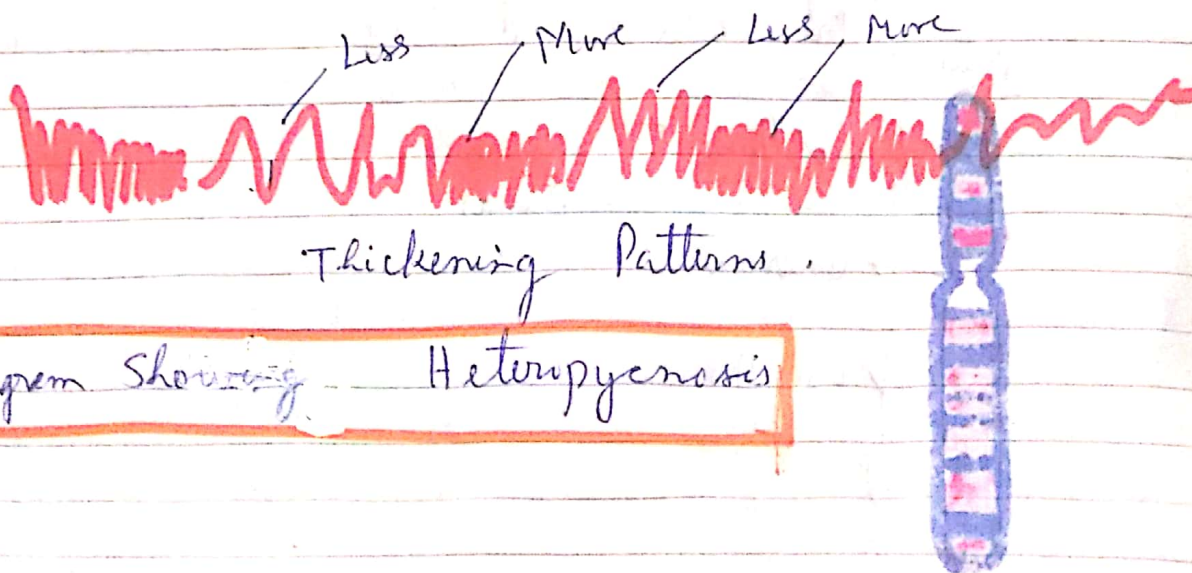 Less More Less More
Thickening Patterns.
grem Showing Heteropycnosis